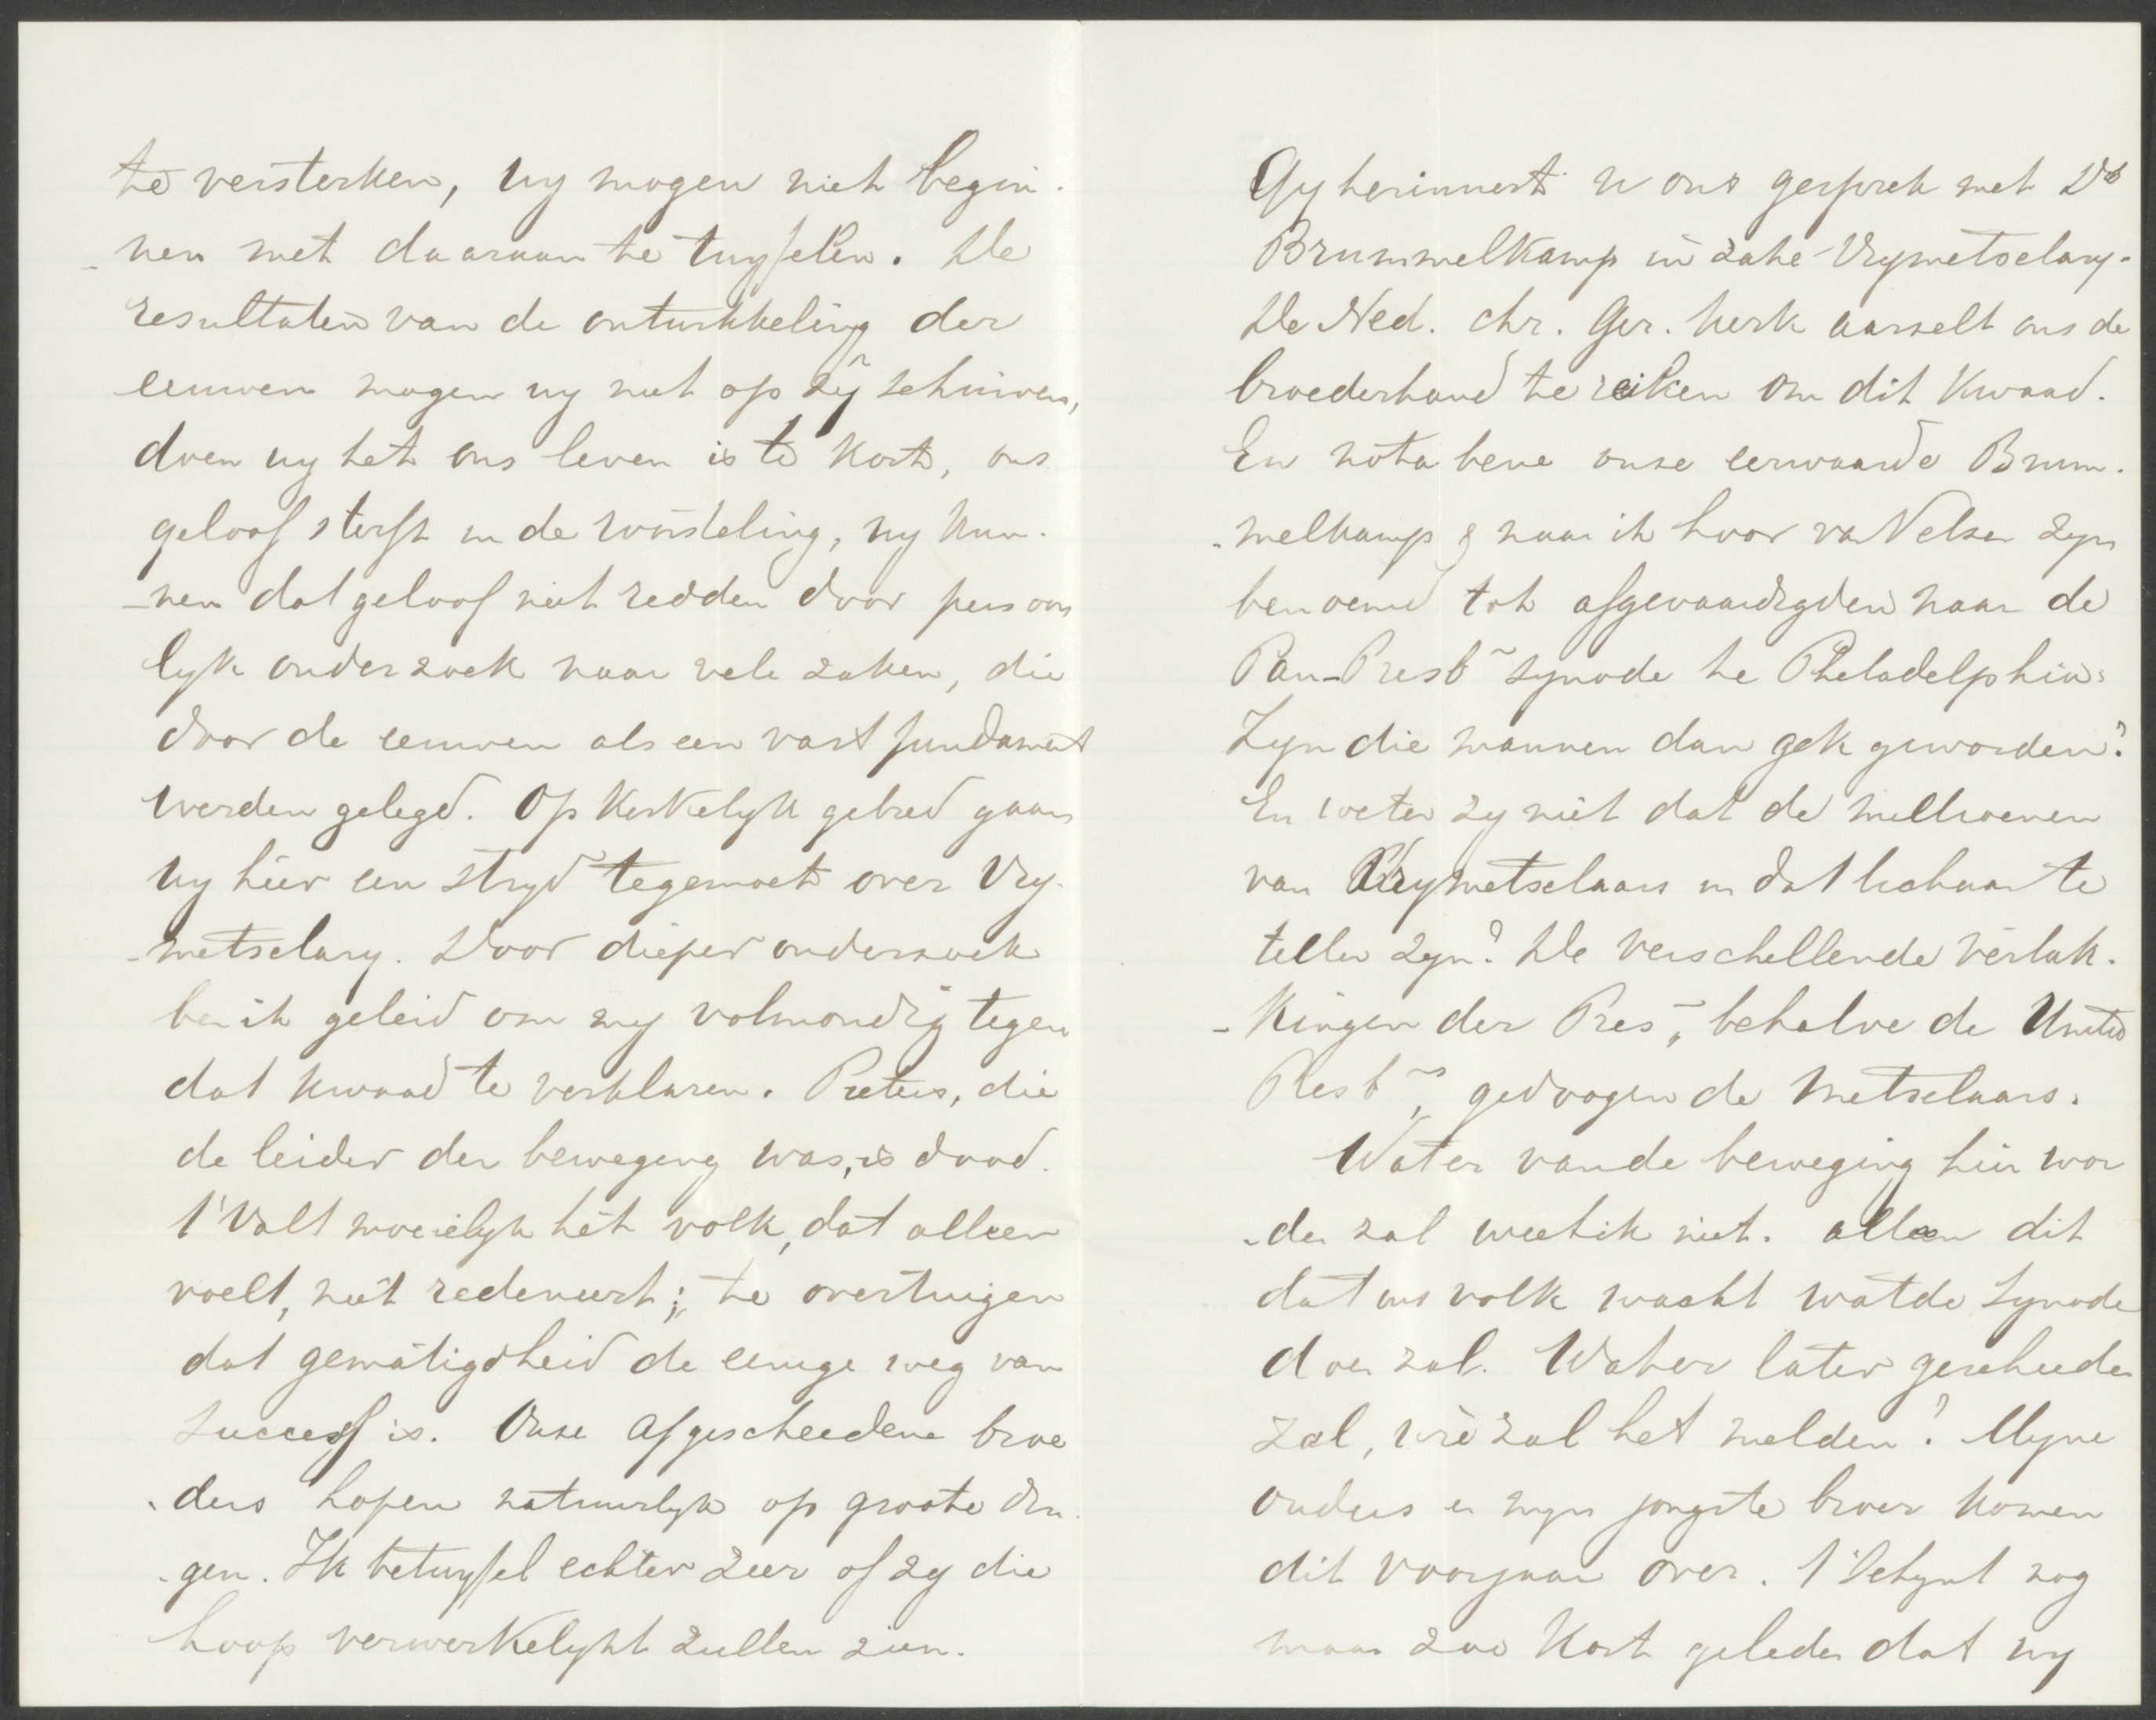 te versterken, wy mogen niet begin-
-nen met daaraan te twyfelen. De
resultaten van de ontwikkeling der
eeuwen mogen wy niet op zÿ schuiven,
doen wy het ons leven is te kort, ons
geloof sterft in de worsteling, wy kun-
-nen dat geloof niet redden door persoon
lyk onderzoek naar vele zaken, die
door de eeuwen als een vast fundament
werden gelegd. Op kerkelyk gebied gaan
wy hier een stryd tegemoet over Vry-
-metselary. Door dieper onderzoek
ben ik geleid om my volmondig tegen
dat kwaad te verklaren. Pieters, die
de leider der beweging was, is dood.
't Valt moeielyk het volk, dat alleen
voelt, niet redeneert; te overtuigen
dat gematigdheid de eenige weg van
succes is. Onze afgescheedene broe
-ders hopen natuurlyk op groote din-
-gen. Ik betwyfel echter zeer of zy die
hoop verwerkelykt zullen zien.
Gy herinnert u ons gesprek met Ds
Brummelkamp in zake Vrymetselary.
De Ned. Chr. Ger. Kerk aarzelt ons de
broederhand te reiken om dit kwaad.
En nota bene onze eerwaarde Brum-
-melkamp & naar ik hoor van Velzen zyn
benoemd tot afgevaardigden naar de
Pan-Presb~ synode te Philadelphia.
Zyn die mannen dan gek geworden?
En weten zy niet dat de millioenen
van Vrymetselaars in dat lichaam te
tellen zyn? De verschillende vertak-
-kingen der Pres~, behalve de United
Presb~, gedoogen de Metselaars.
Wat er van de beweging hier wor
-den zal weet ik niet. alleen dit
dat ons volk wacht wat de Synode
doen zal. Wat er later geschieden
zal, wie zal het melden? Myne
ouders en myn jongste broer komen
dit voorjaar over. 't Schynt nog
maar zoo kort geleden dat wy